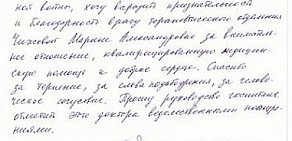 ной волно, хочу выразить признательность
и благодарность врачу терапевтического отделения
Чиховой Марине Александровне за вниматель-
ное отношение, квалифицированную медицин-
скую помощь и доброе сердце. Спасибо
за терпение, за слова подбодрения, за челове-
ческое сочувствие. Прошу руководство госпиталя
отметить этого доктора ведомственными поощре-
ниями.